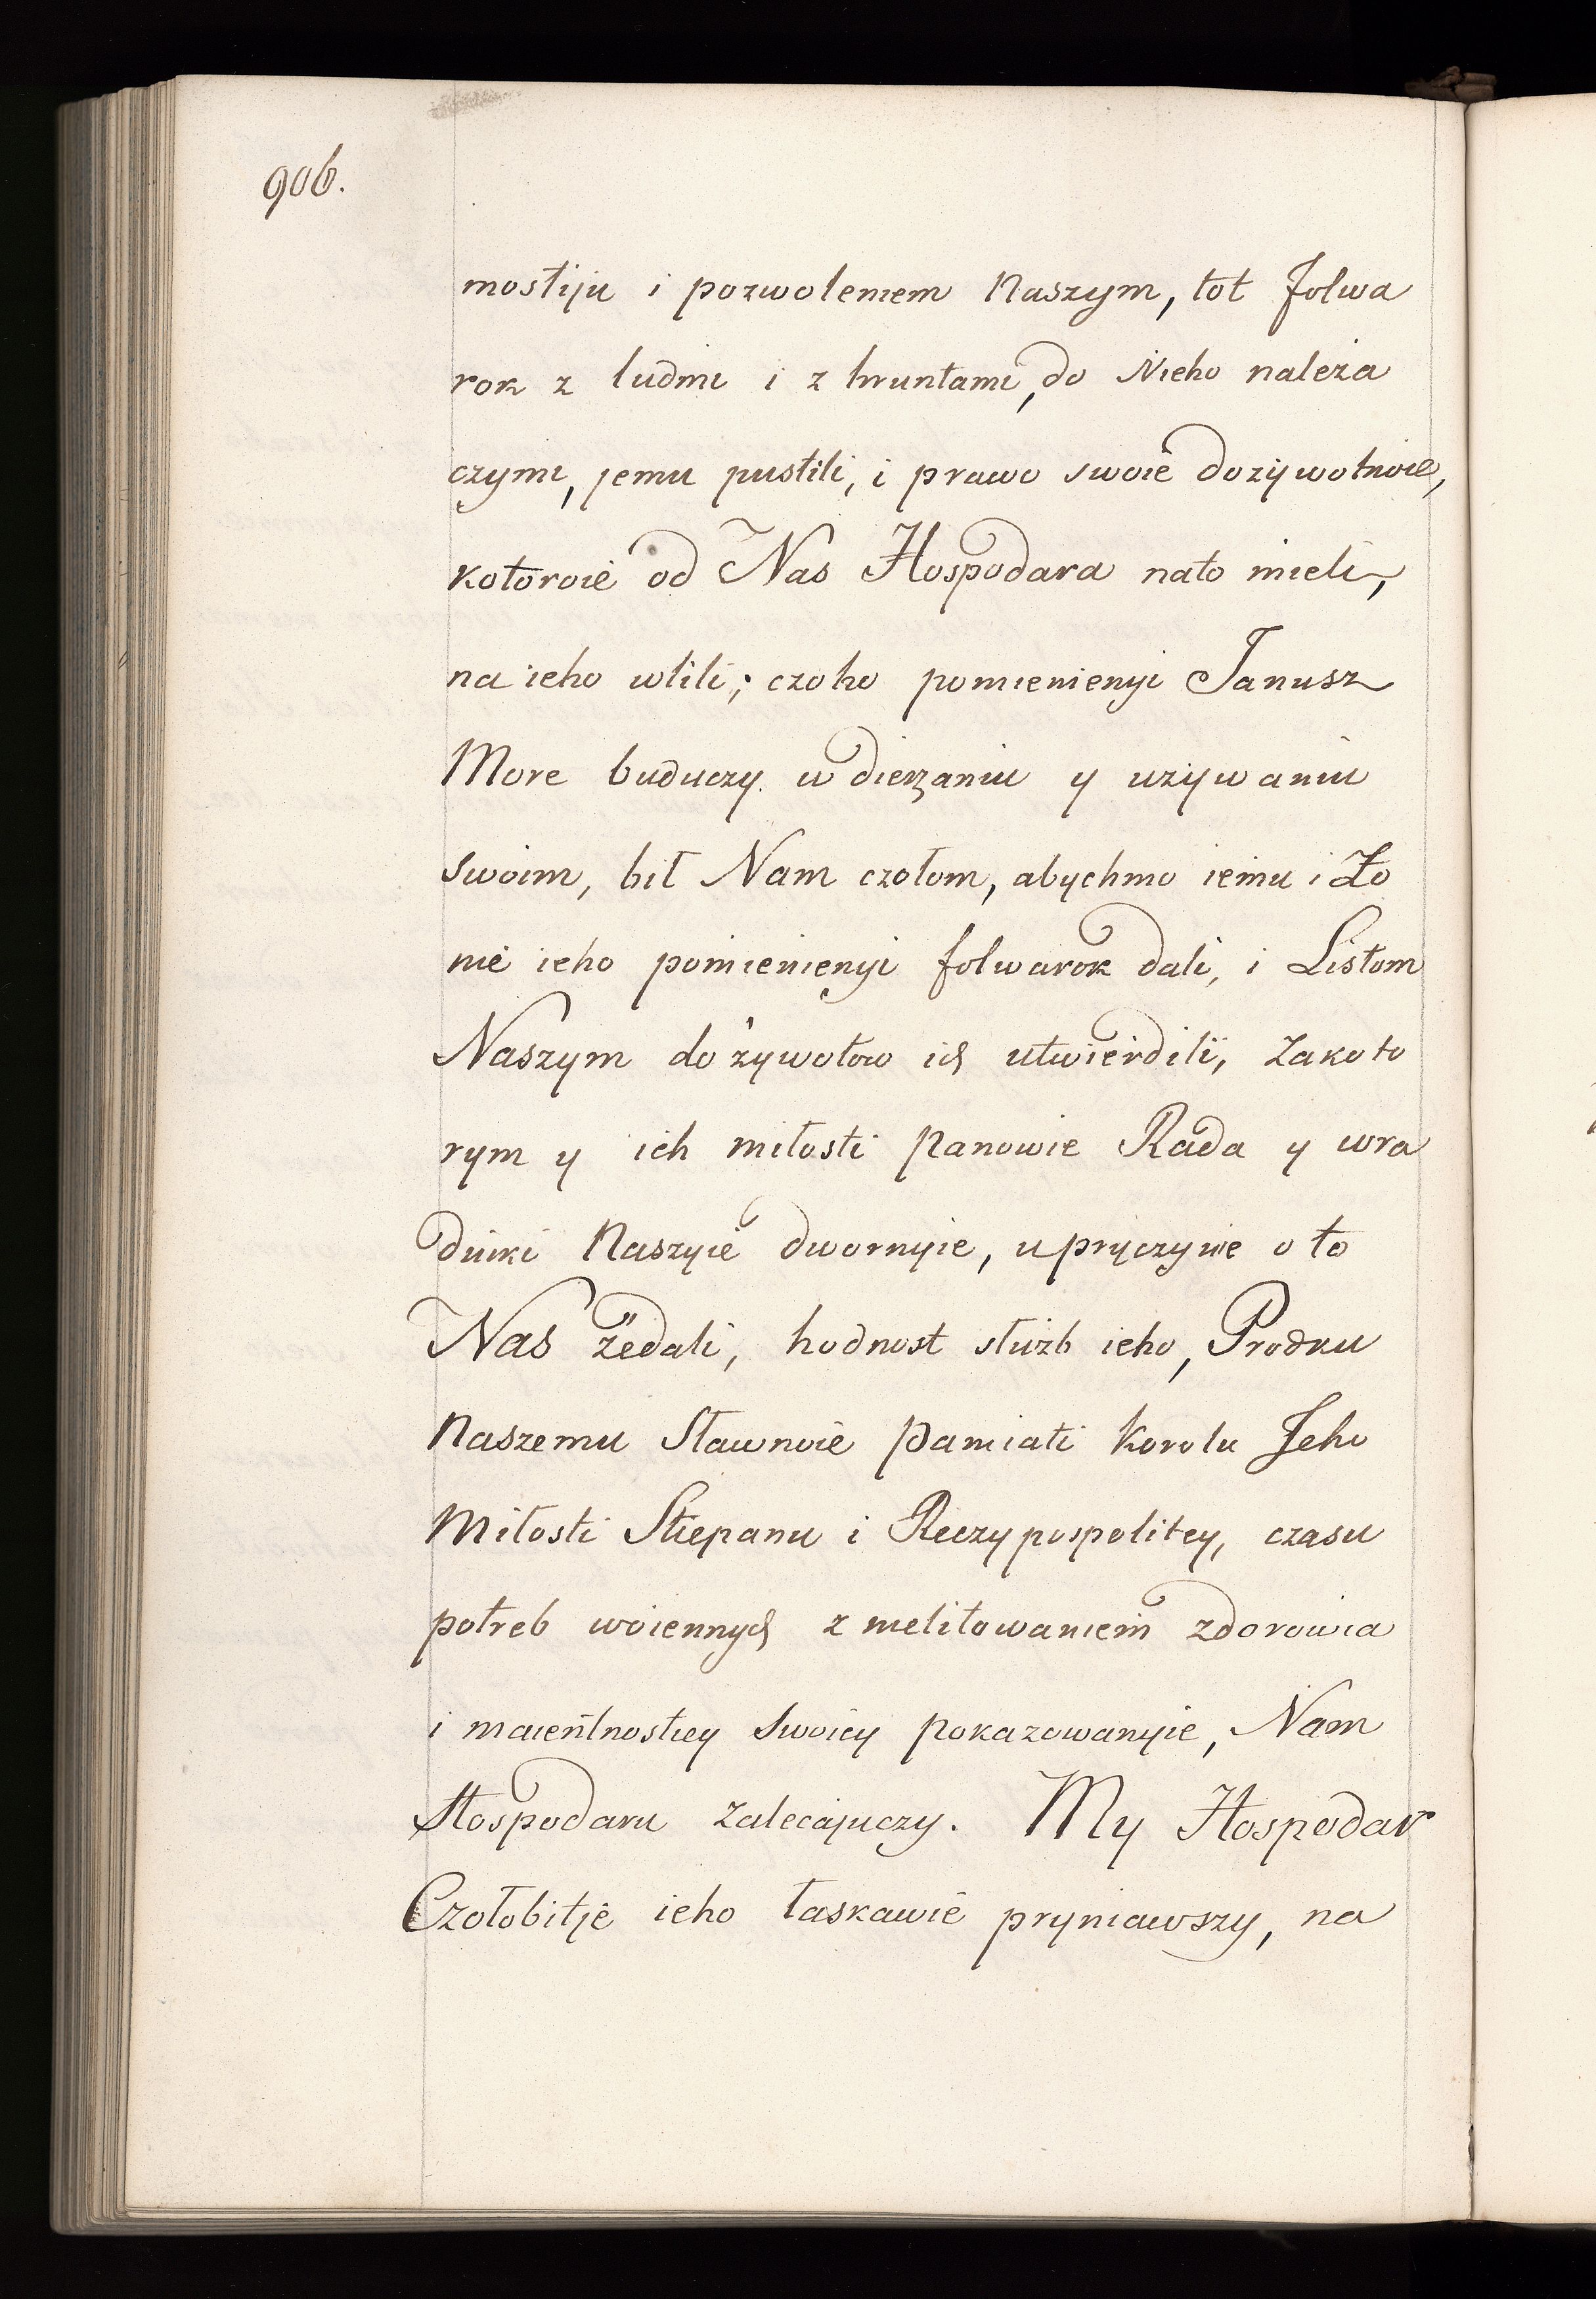 906.
mostiju i pozwoleniem Naszym, tot folwa
rok z ludmi i z hruntami, do Nieho należa
czymi, jemu pustili, i prawo swoie dożywotnoie,
kotoroie od Nas Hospodara nato mieli,
na ieho wlili; czoho pomienienyi Janusz
More buduczy w dierżaniu y używaniu
swoim, bił Nam czołom, abychmo iemu i Żo
nie ieho pomienienyi folwarok dali, i Listom
Naszym do żywotow ich utwierdili, zakoto
rym y ich miłosti Panowie Rada y wra
dniki Naszyie dwornyie, u pryczynie o to
Nas żedali, hodnost służb ieho, Prodku
Naszemu Sławnoie Pamiati Korolu Jeho
Miłosti Stiepanu i Reczypospolitey, czasu
potreb woiennych z nielitowaniem zdorowia
i maientnostiey swoiey pokazowanyie, Nam
Hospodaru zalecajuczy. My Hospodar
Czołobitje ieho łaskawie pryniawszy, na